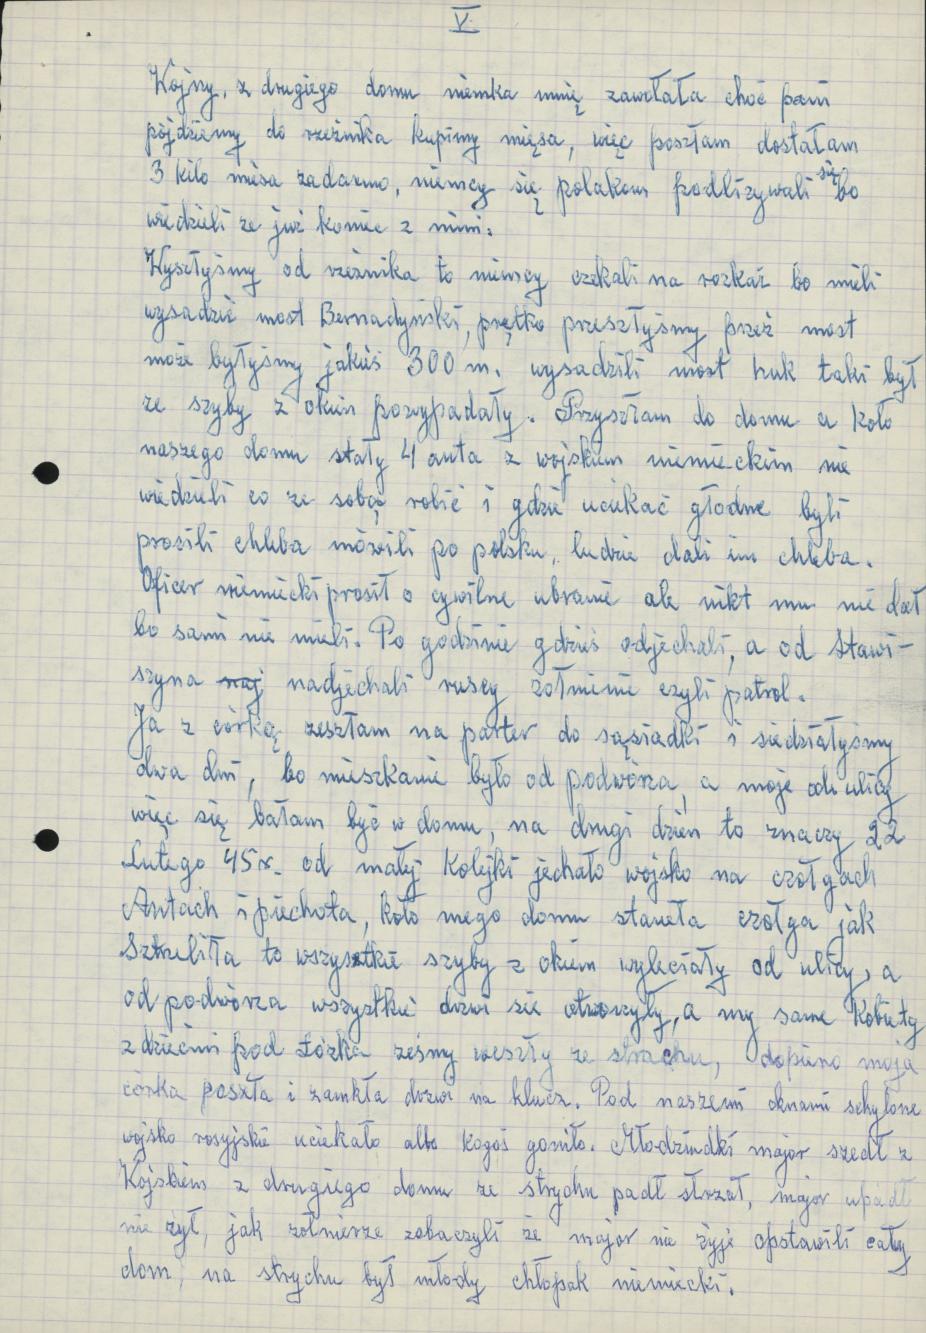 V.
Wojny, z drugiego domu niemka mnię zawołała choć pani
pójdziemy do rzeźnika kupimy mięsa, więc poszłam dostałam
3 kilo miesa zadarmo, niemcy się polakom podlizywali się bo
wiedzieli ze już koniec z nimi.
Wyszłyśmy od rzeźnika to niemcy czekali na rozkaz bo mieli
wysadzić most Bernadyński, prętko przeszłyśmy przez most
może byłyśmy jakieś 300 m. wysadzili most huk taki był
ze szyby z okien powypadały. Przyszłam do domu a koło
naszego domu stały 4 auta z wojskiem niemieckim nie
wiedzieli co ze sobą robić i gdzie uciekać głodne byli
prosili chleba mówili po polsku, ludzie dali im chleba.
Oficer niemiecki prosił o cywilne ubranie ale nikt mu nie dał
bo sami nie mieli. Po godzinie gdzieś odjechali, a od Stawi-
szyna naj nadjechali ruscy żołnierze czyli patrol.
Ja z córką zeszłam na parter do sąsiadki i siedziałyśmy
dwa dni, bo mieszkanie było od podwórza, a moje od ulicy
więc się bałam być w domu, na drugi dzień to znaczy 22
Lutego 45r. od małej Kolejki jechało wojsko na czołgach
Autach i piechota, koło mego domu staneła czołga jak
Sztreliła to wszystkie szyby z okien wyleciały od ulicy, a
od podwórza wszystkie drzwi sie otworzyły, a my same Kobiety
z dziećmi pod łóżka żeśmy weszły ze strachu, dopiero moja
córka poszła i zamkła drzwi na klucz. Pod naszemi oknami schylone
wojsko rosyjskie uciekało albo kogoś goniło. Młodziudki major szedł z
Wojskiem z drugiego domu ze strychu padł strzał, major upadł
nie żył, jak żołnierze zobaczyli że major nie żyje opstawili cały
dom, na strychu był młody chłopak niemiecki.